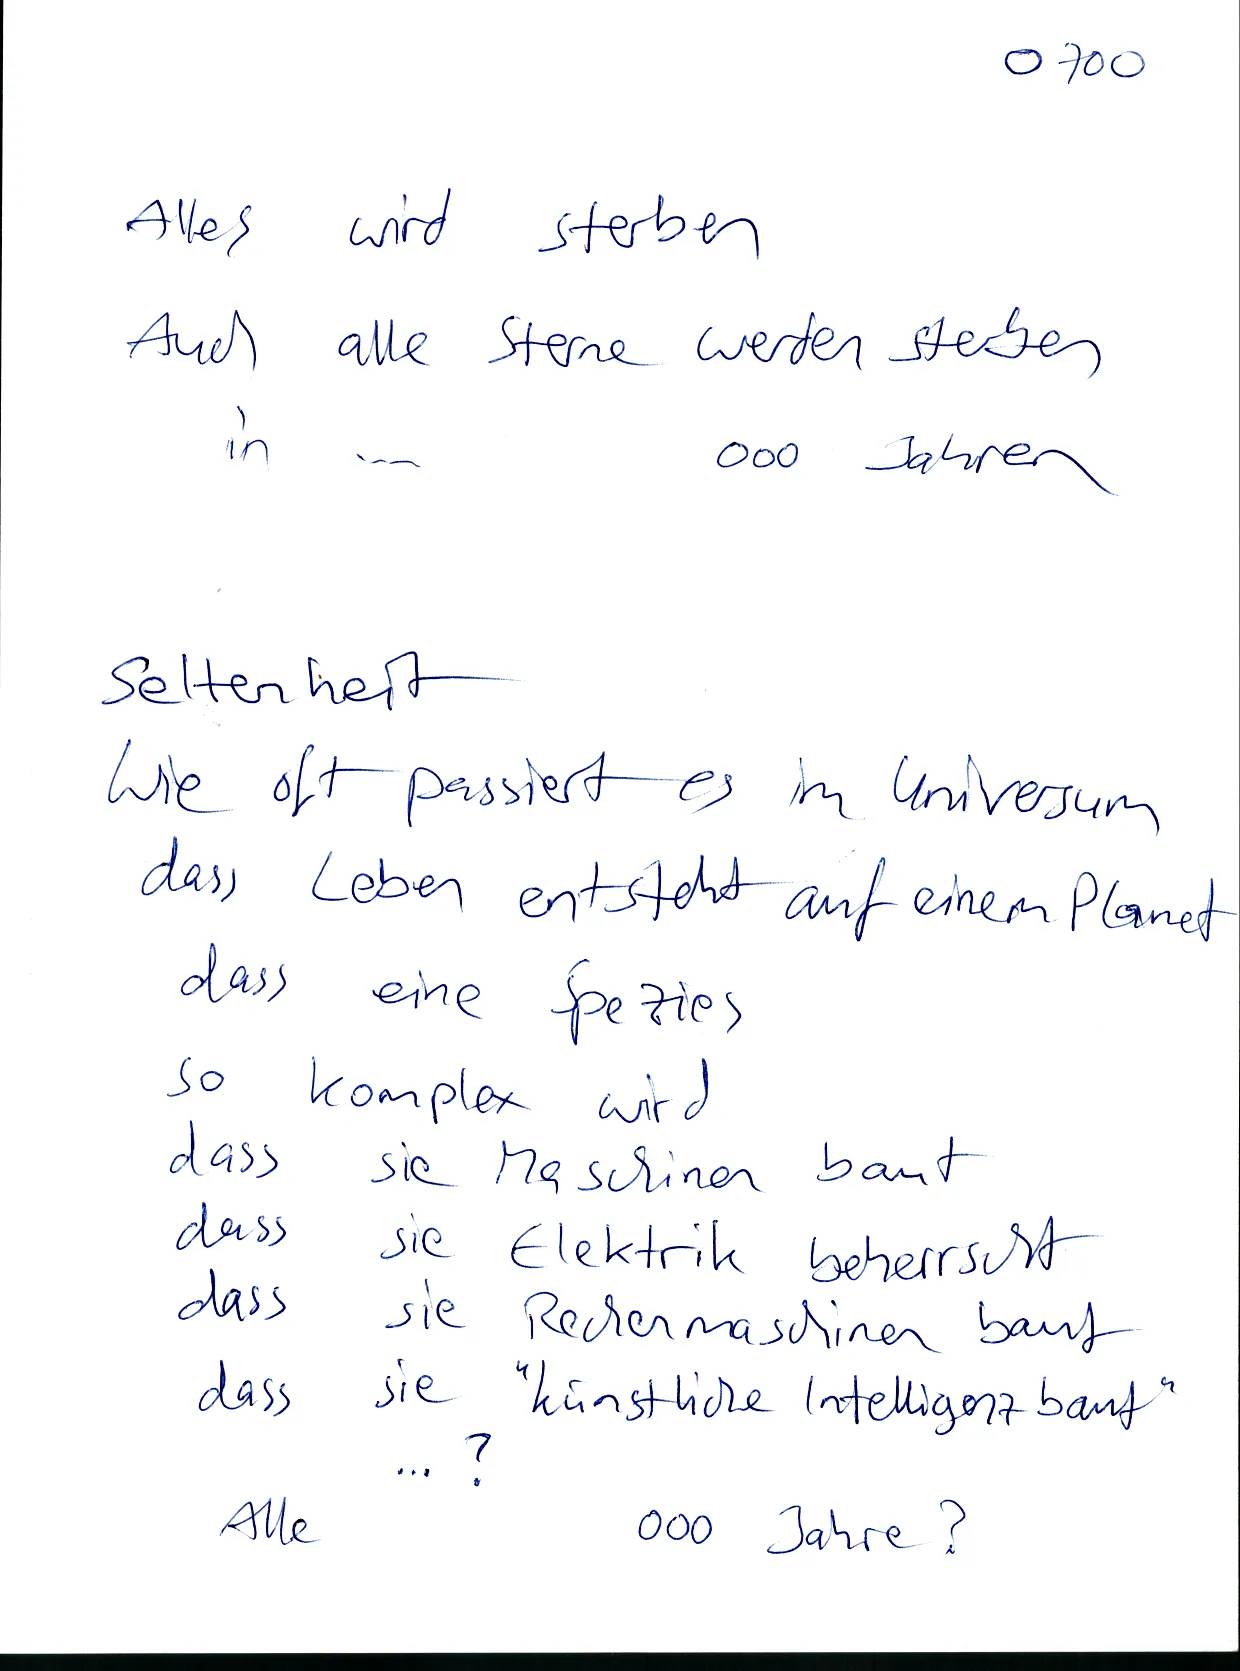 0700
Alles wird sterben
Auch alle Sterne werden sterben
in ... 000 Jahren
Seltenheit
Wie oft passiert es im Universum
dass Leben entsteht auf einem Planet
dass eine Spezies
so komplex wird
dass sie Maschinen baut
dass sie Elektrik beherrscht
dass sie Rechenmaschinen baut
dass sie "künstliche Intelligenz baut"
... ?
Alle 000 Jahre?